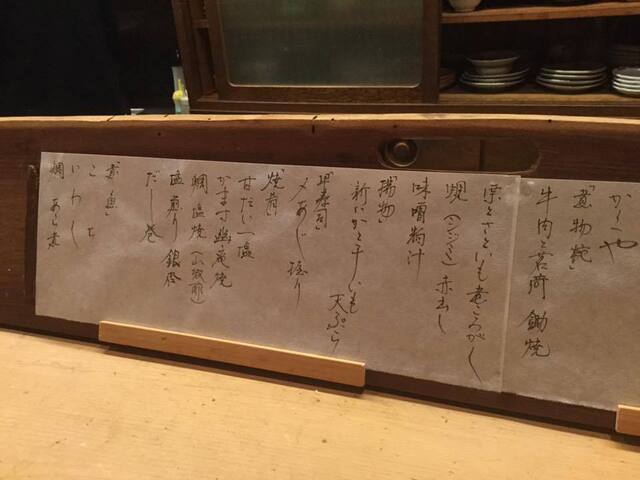 かくや
「煮物椀」
牛肉と茗荷 鋤焼
栗とさといも煮ころがし
蜆(シジミ)赤出し
味噌粕汁
「揚物」
新いかと干しいも 天ぷら
「早寿司」
〆あじ 棒り
「焼肴」
甘だい一塩
かます幽庵焼
鯛塩焼(山椒郎)
塩煎り銀杏
だし巻
「煮魚」
こち
いわし
鯛 あら煮